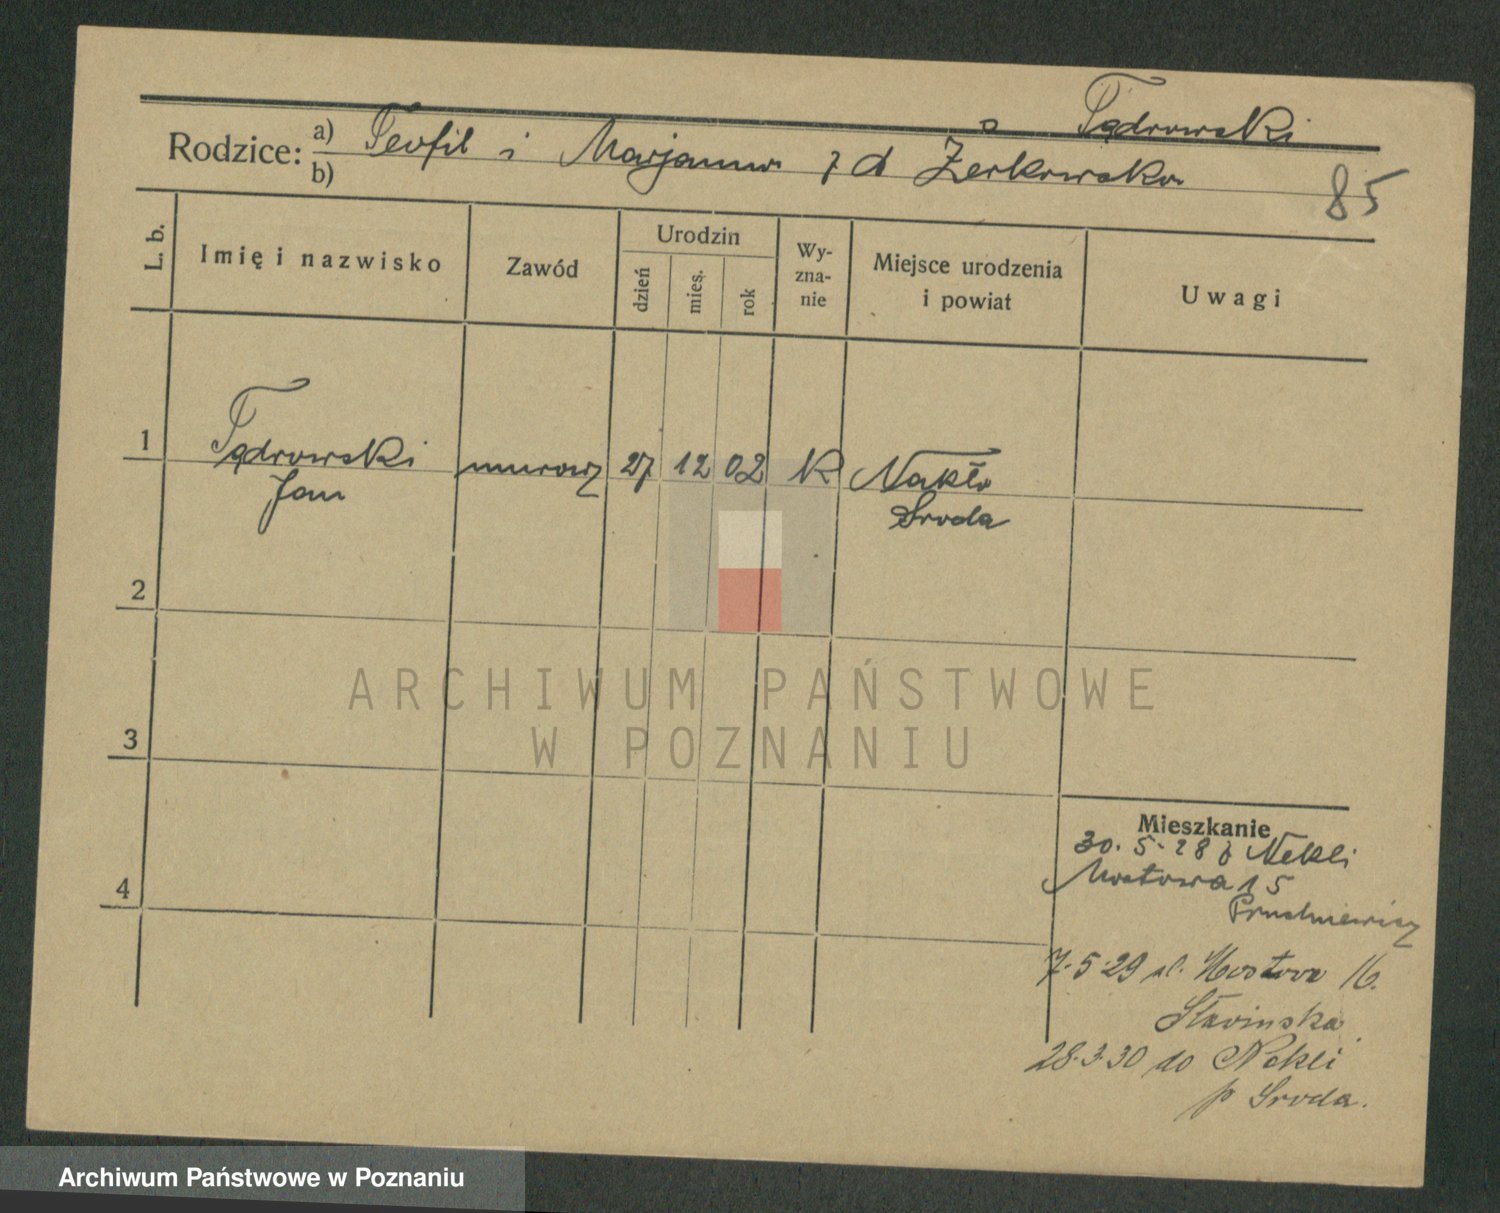 Tądrowski
Rodzice: a) Teofil i Marjanna z d Żerkowska
b)
85
L. b.
Imię i nazwisko
Zawód
Urodzin
dzień
mies.
rok
Wy-
zna-
nie
Miejsce urodzenia
i powiat
Uwagi
1
Tądrowski
Jan
murarz
27 12 02
K
Nakło
Sroda
2
3
4
ARCHIWUM PAŃSTWOWE
W POZNANIU
Mieszkanie
30.5.28 z Nekli
Mostowa 15
7.5.29 ul. Mostowa 16.
Sławinska
28.3.30 do Nekli
p Sroda.
Archiwum Państwowe w Poznaniu